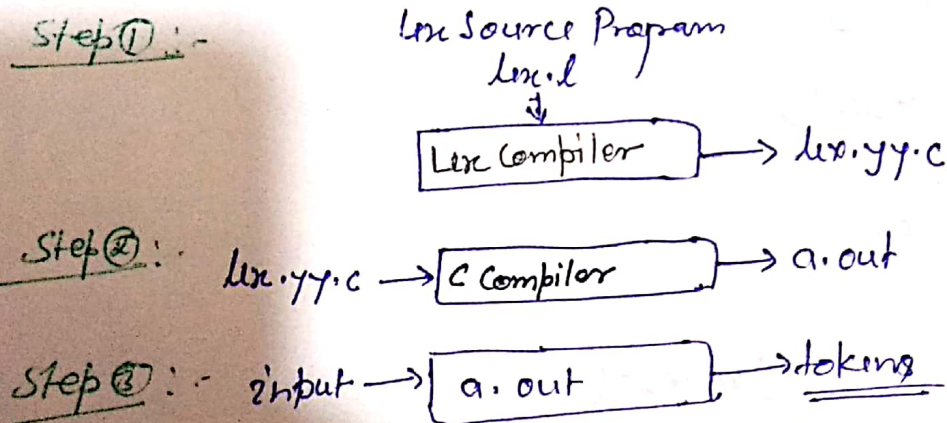 Step ① :-
Lex Source Program
lex.l
Lex Compiler → lex.yy.c
Step ② :-
lex.yy.c → C Compiler → a.out
Step ③ :- input → a.out → tokens